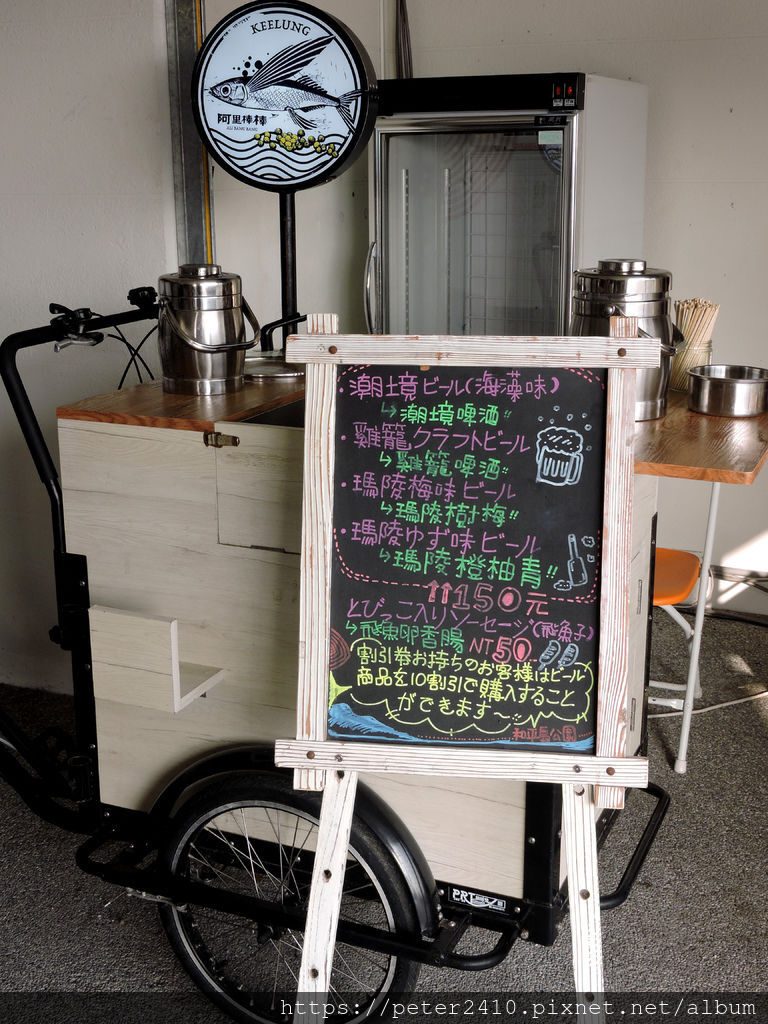 KEELUNG
阿里棒棒
ALI BANG BANG
・潮境ビール(海藻味)
↳潮境啤酒!!
・雞籠クラフトビール
↳雞籠啤酒!!
・瑪陵梅味ビール
↳瑪陵樹梅!!
・瑪陵ゆず味ビール
↳瑪陵橙柚青!!
↑↑150元
とびっこ入りソーセージ(飛魚子)
↳飛魚卵香腸 NT50
割引券お持ちのお客様はビール
商品を10割引で購入すること
ができます～
和平島公園
https://peter2410.pixnet.net/album